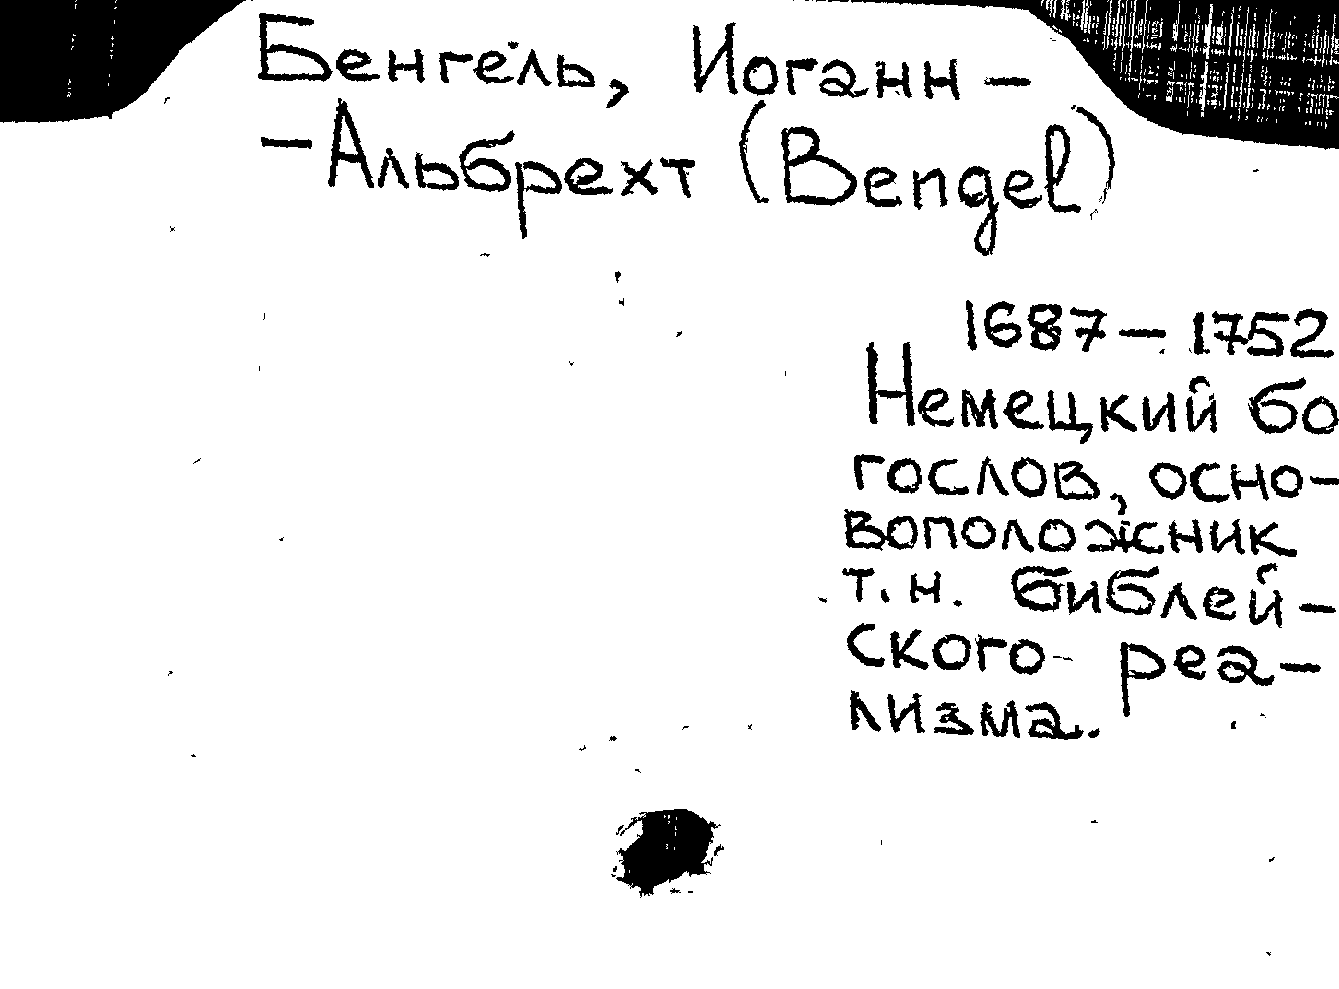 Бенгель, Иоганн –
– Альбрехт (Bengel)
1687 – 1752
Немецкий бо
гослов, осно-
воположник
т.н. библей-
ского реа-
лизма.